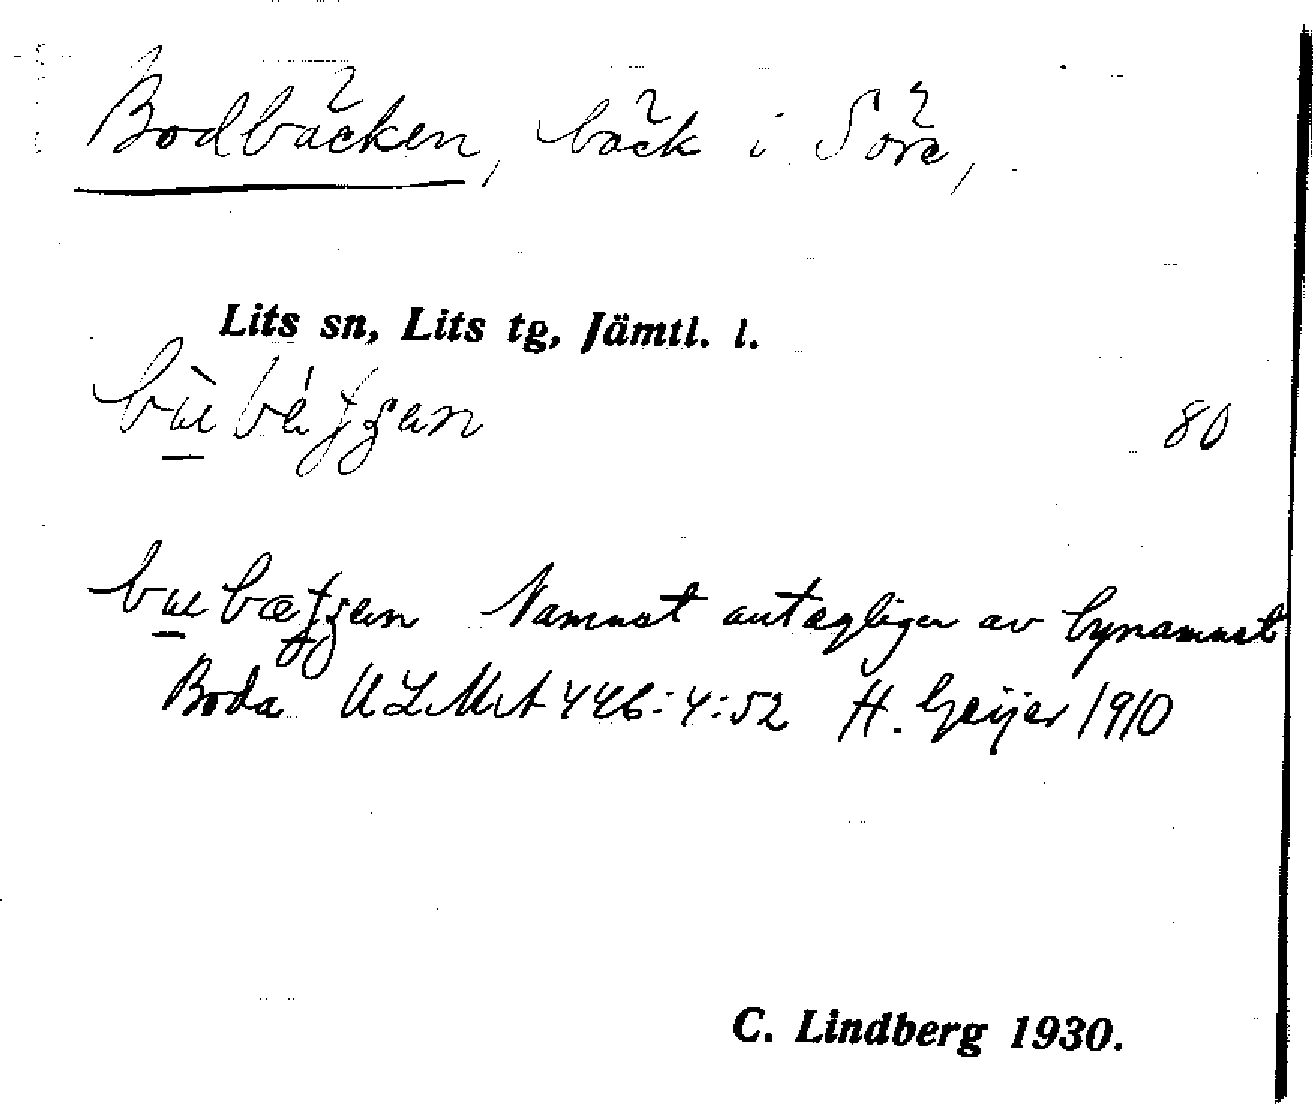 Bodbäcken, bäck i Söre,
Lits sn, Lits tg, Jämtl. l.
80
Namnet antagligen av bynamnet
Boda ULMA 446:4:52 H. Geijer 1910
C. Lindberg 1930.